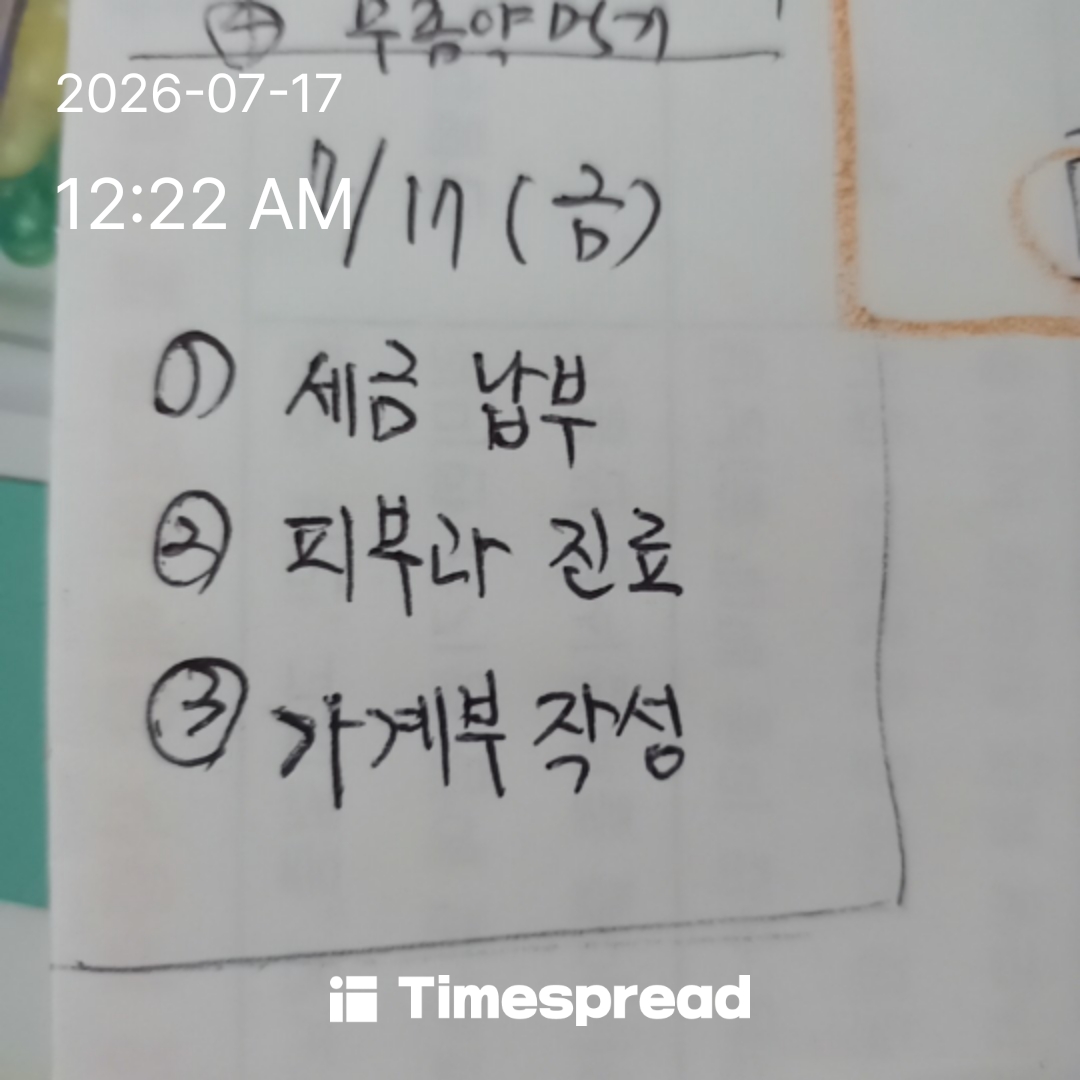 ④ 무좀약 먹기
2026-07-17
12:22 AM
7/17 (금)
① 세금 납부
② 피부과 진료
③ 가계부 작성
Timespread